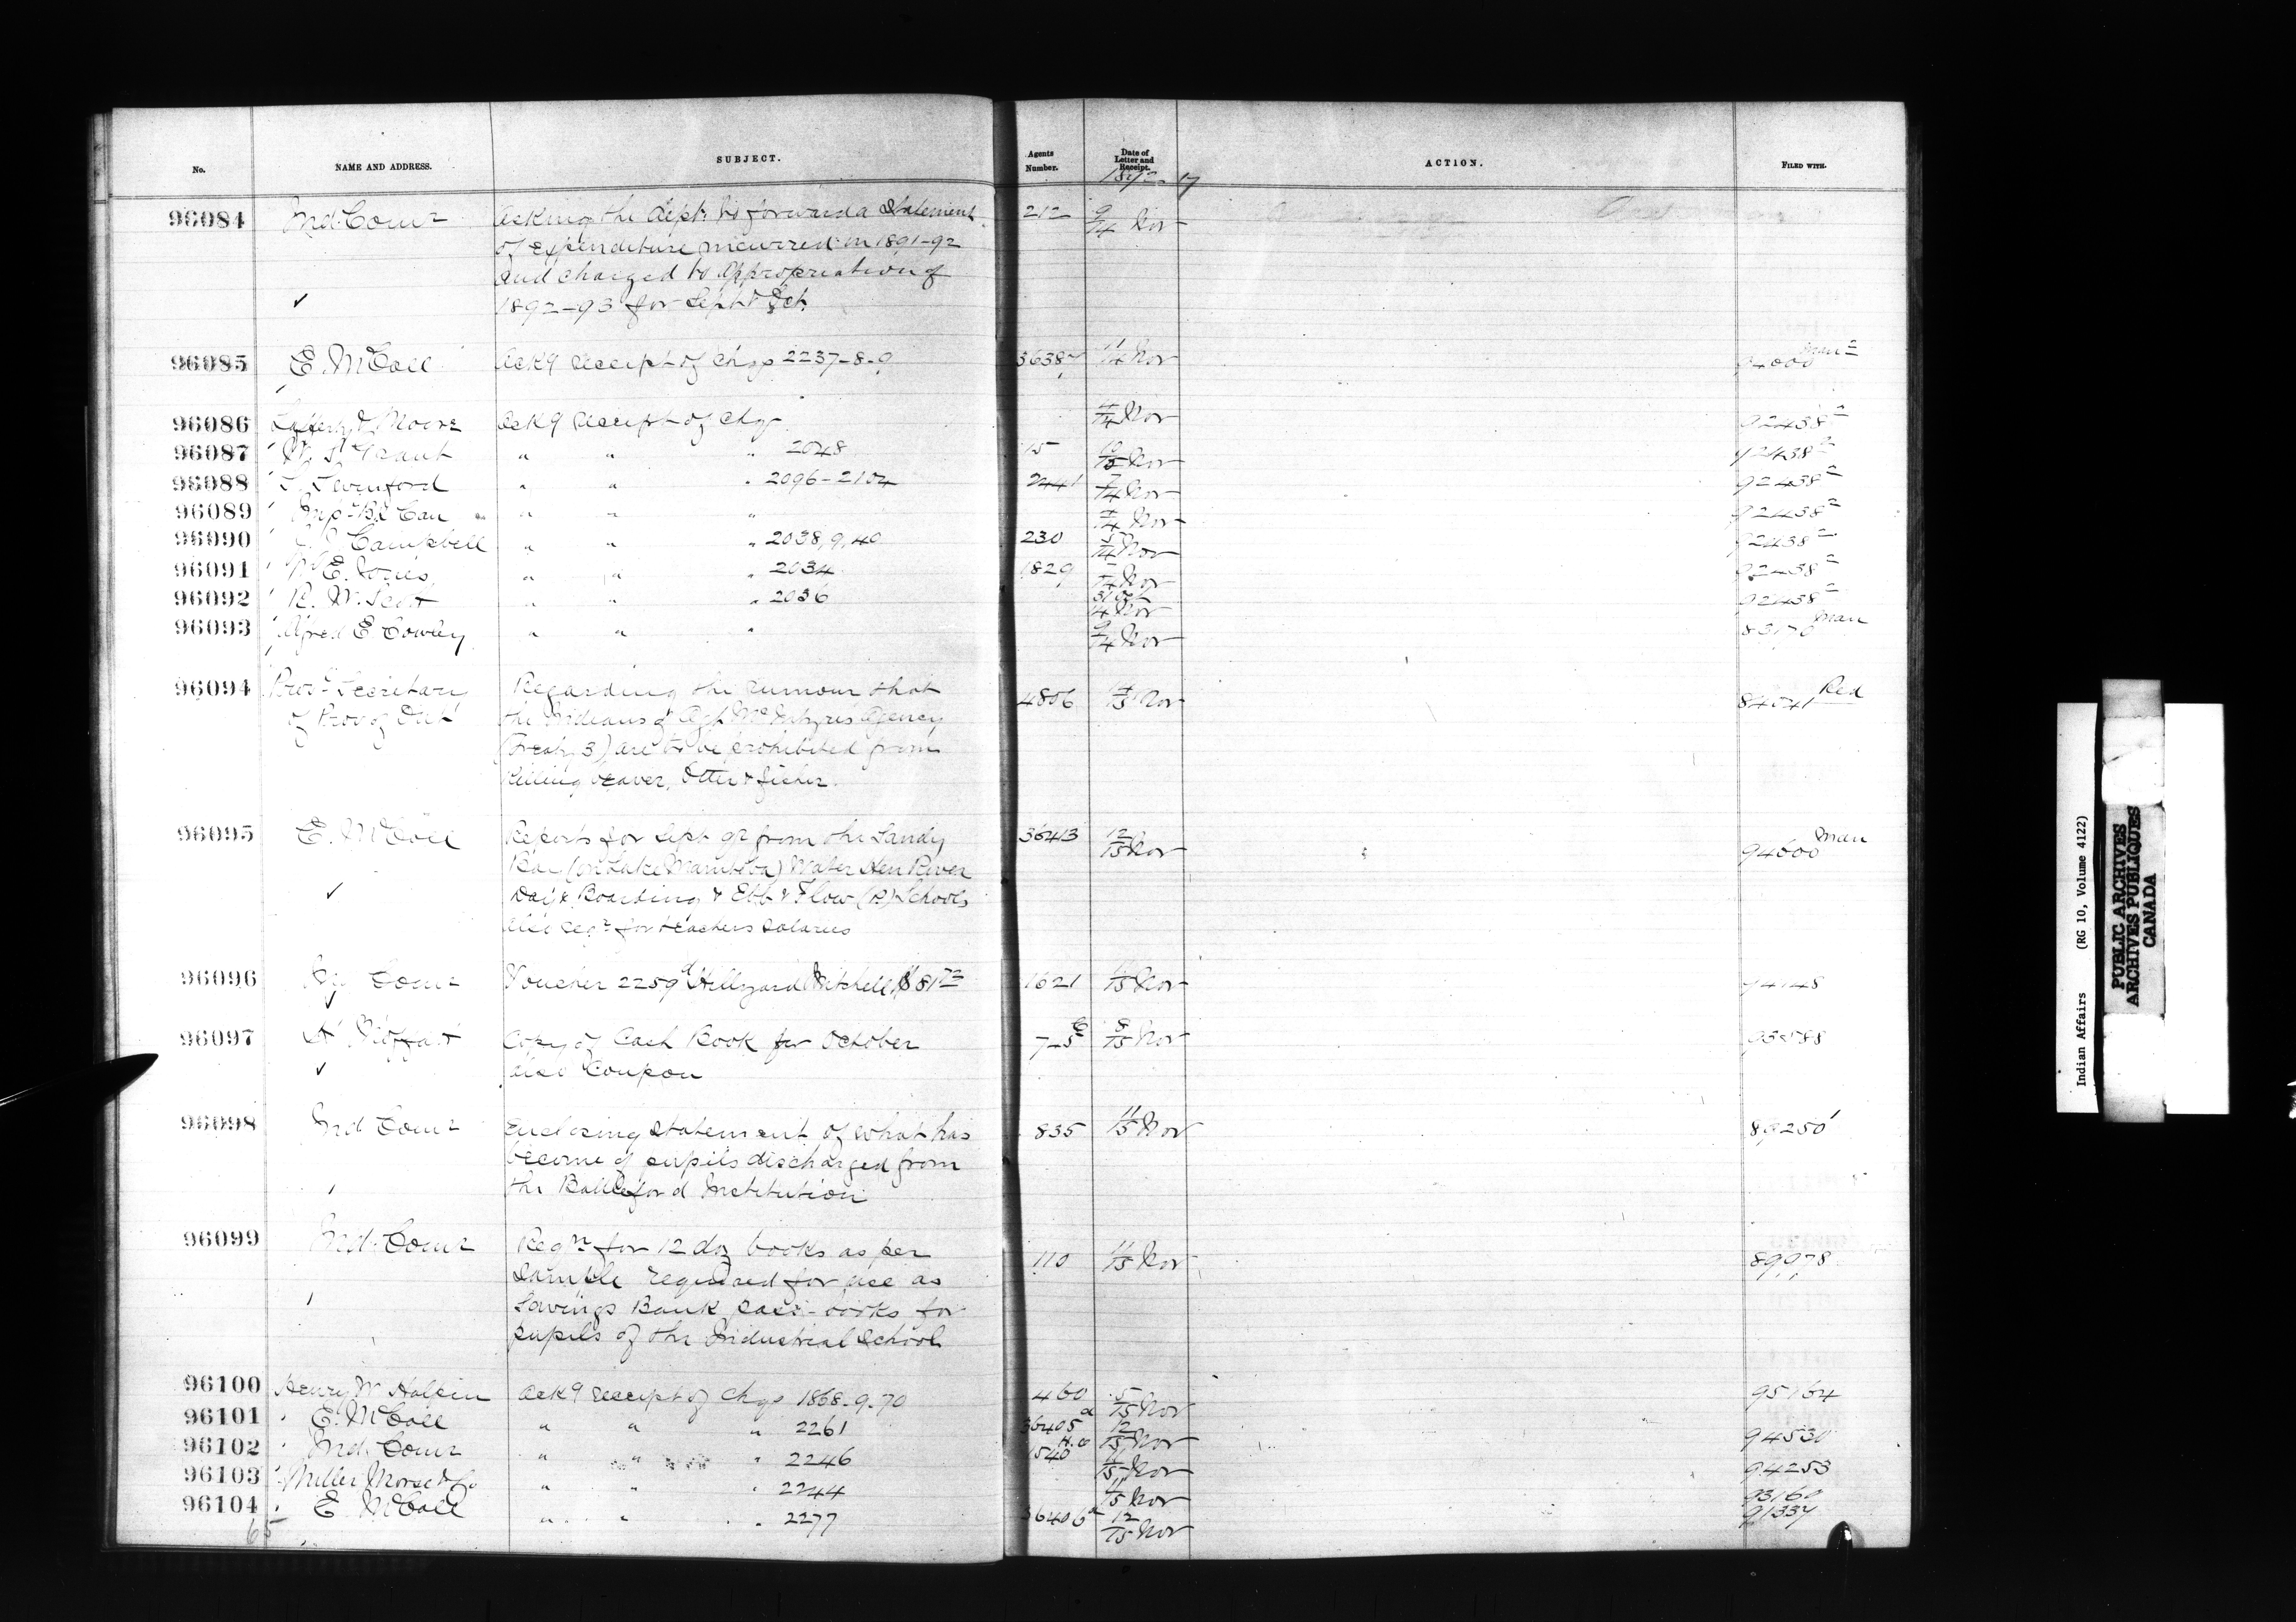 No. NAME AND ADDRESS. SUBJECT. Agents Number. Date of Letter and Receipt. ACTION. FILED WITH.
96084 Ind. Comr Asking the Dept. to forward a statement 212 9/14 Nov
of expenditure incurred in 1891-92
and charged to appropriation of
1892-93 for Sept & Oct.
96085 E. McColl Ack'g receipt of chqs 2237-8-9 11/14 Nov 94000 Man
96086 & Moore Ack'g receipt of chqs 4/14 Nov 92438-2
96087 W. S. Grant " " " 2048 15 10/15 Nov 92438-2
96088 " " " 2096-2104 2441 7/14 Nov 92438-2
96089 Imp. Bk Can " " " 4/14 Nov 92438-2
96090 Campbell " " " 2038, 9, 40 230 5/14 Nov 92438-2
96091 W. E. Jones " " " 2034 1829 /14 Nov 92438-2
96092 R. W. Scott " " " 2036 31 Oct 14 Nov 92438-2
96093 Alfred E Cowley " " " 9/14 Nov 83170 Man
96094 Prov. Secretary Regarding the rumour that 4806 14/15 Nov Red
of Prov of Ont the Indians of Agt McIntyres Agency
(Treaty 3) are to be prohibited from
killing beaver, otter & fisher.
96095 E. McColl Reports for Sept 92 from the Sandy 36413 12/15 Nov 94000 Man
Bar (on Lake Manitoba) Water Hen River
Day & Boarding & Ebb & Flow (R) Schools
also reqn for teachers salaries
96096 Comr Voucher 2259 Hillyard Mitchell $81 1621 /15 Nov 94148
96097 Copy of Cash Book for October 7-5 8/15 Nov
also Coupon
96098 Ind Comr Enclosing statement of what has 835 11/15 Nov 89250
become of pupils discharged from
the Battleford Institution
96099 Ind. Comr Reqn for 12 doz books as per 110 11/15 Nov 89978
sample required for use as
Savings Bank pass-books for
pupils of the Industrial School
96100 Henry W Halpin Ack'g receipt of chqs 1868-9-70 460 5/15 Nov 95164
96101 E. McColl " " " 2261 36405 a 12/15 Nov 94530
96102 Ind. Comr " " " 2246 1540 H.O /15 Nov 94253
96103 Miller Morse & Co " " " 2244 11/15 Nov 93160
96104 E McColl " " " 2277 36406 a 12/15 Nov 91334
65
Indian Affairs (RG 10, Volume 4122)
PUBLIC ARCHIVES
ARCHIVES PUBLIQUES
CANADA